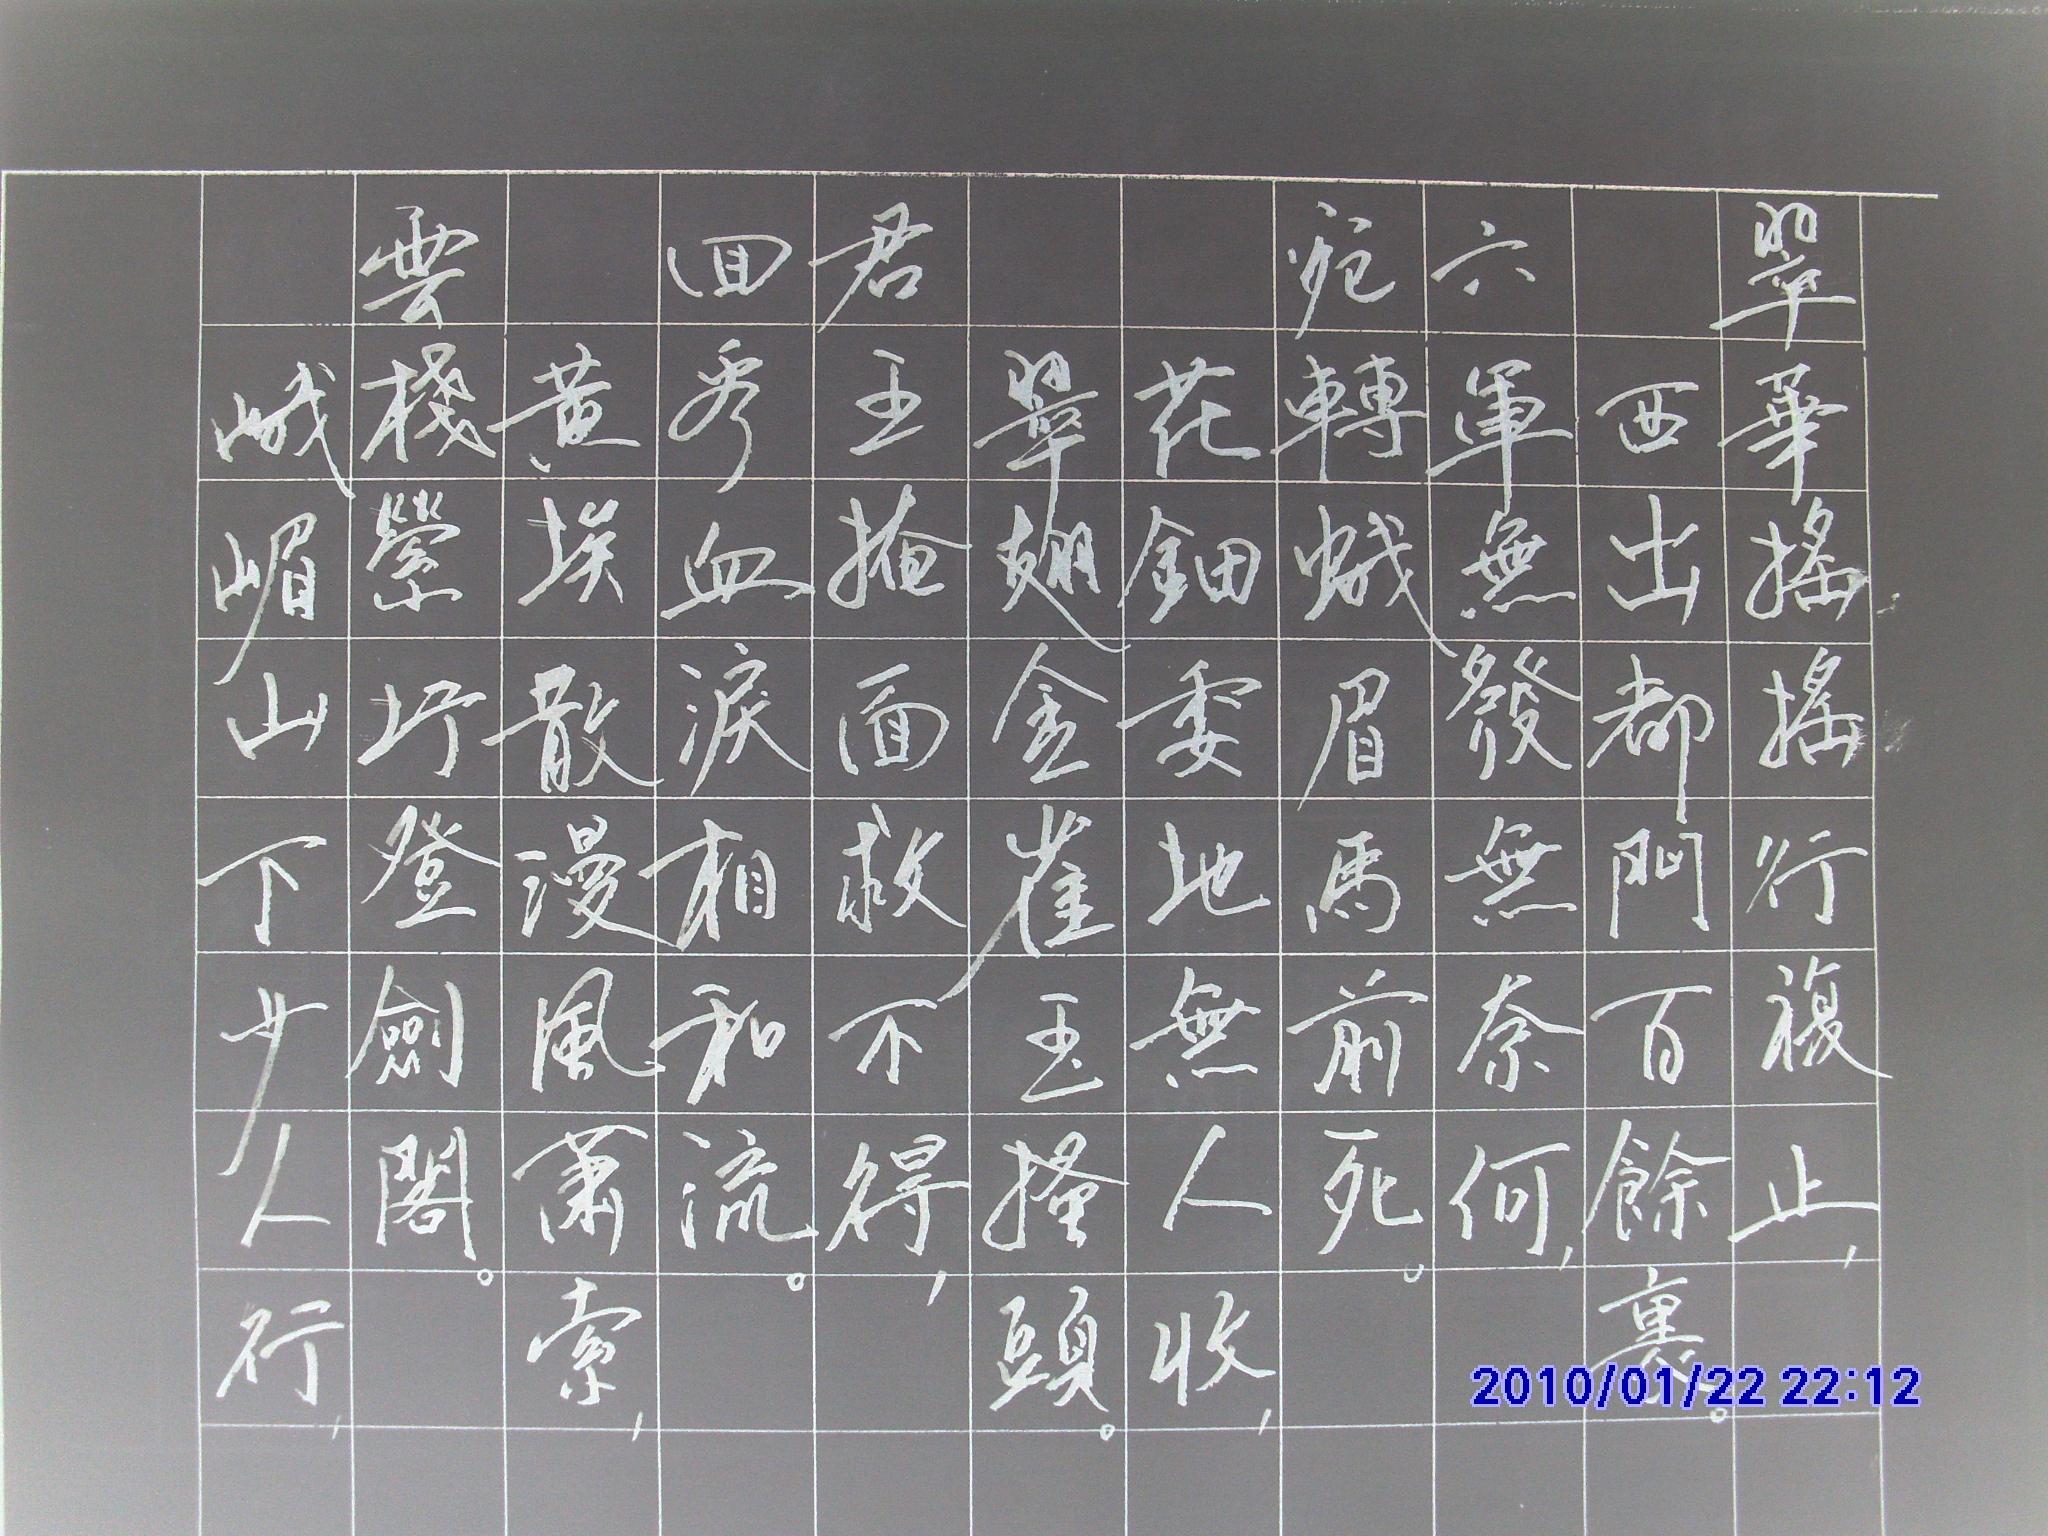 翠華搖搖行複止，
西出都門百餘裏。
六軍無發無奈何，
宛轉蛾眉馬前死。
花鈿委地無人收，
翠翹金雀玉搔頭。
君王掩面救不得，
回看血淚相和流。
黃埃散漫風蕭索，
雲棧縈紆登劍閣。
峨嵋山下少人行，
2010/01/22 22:12